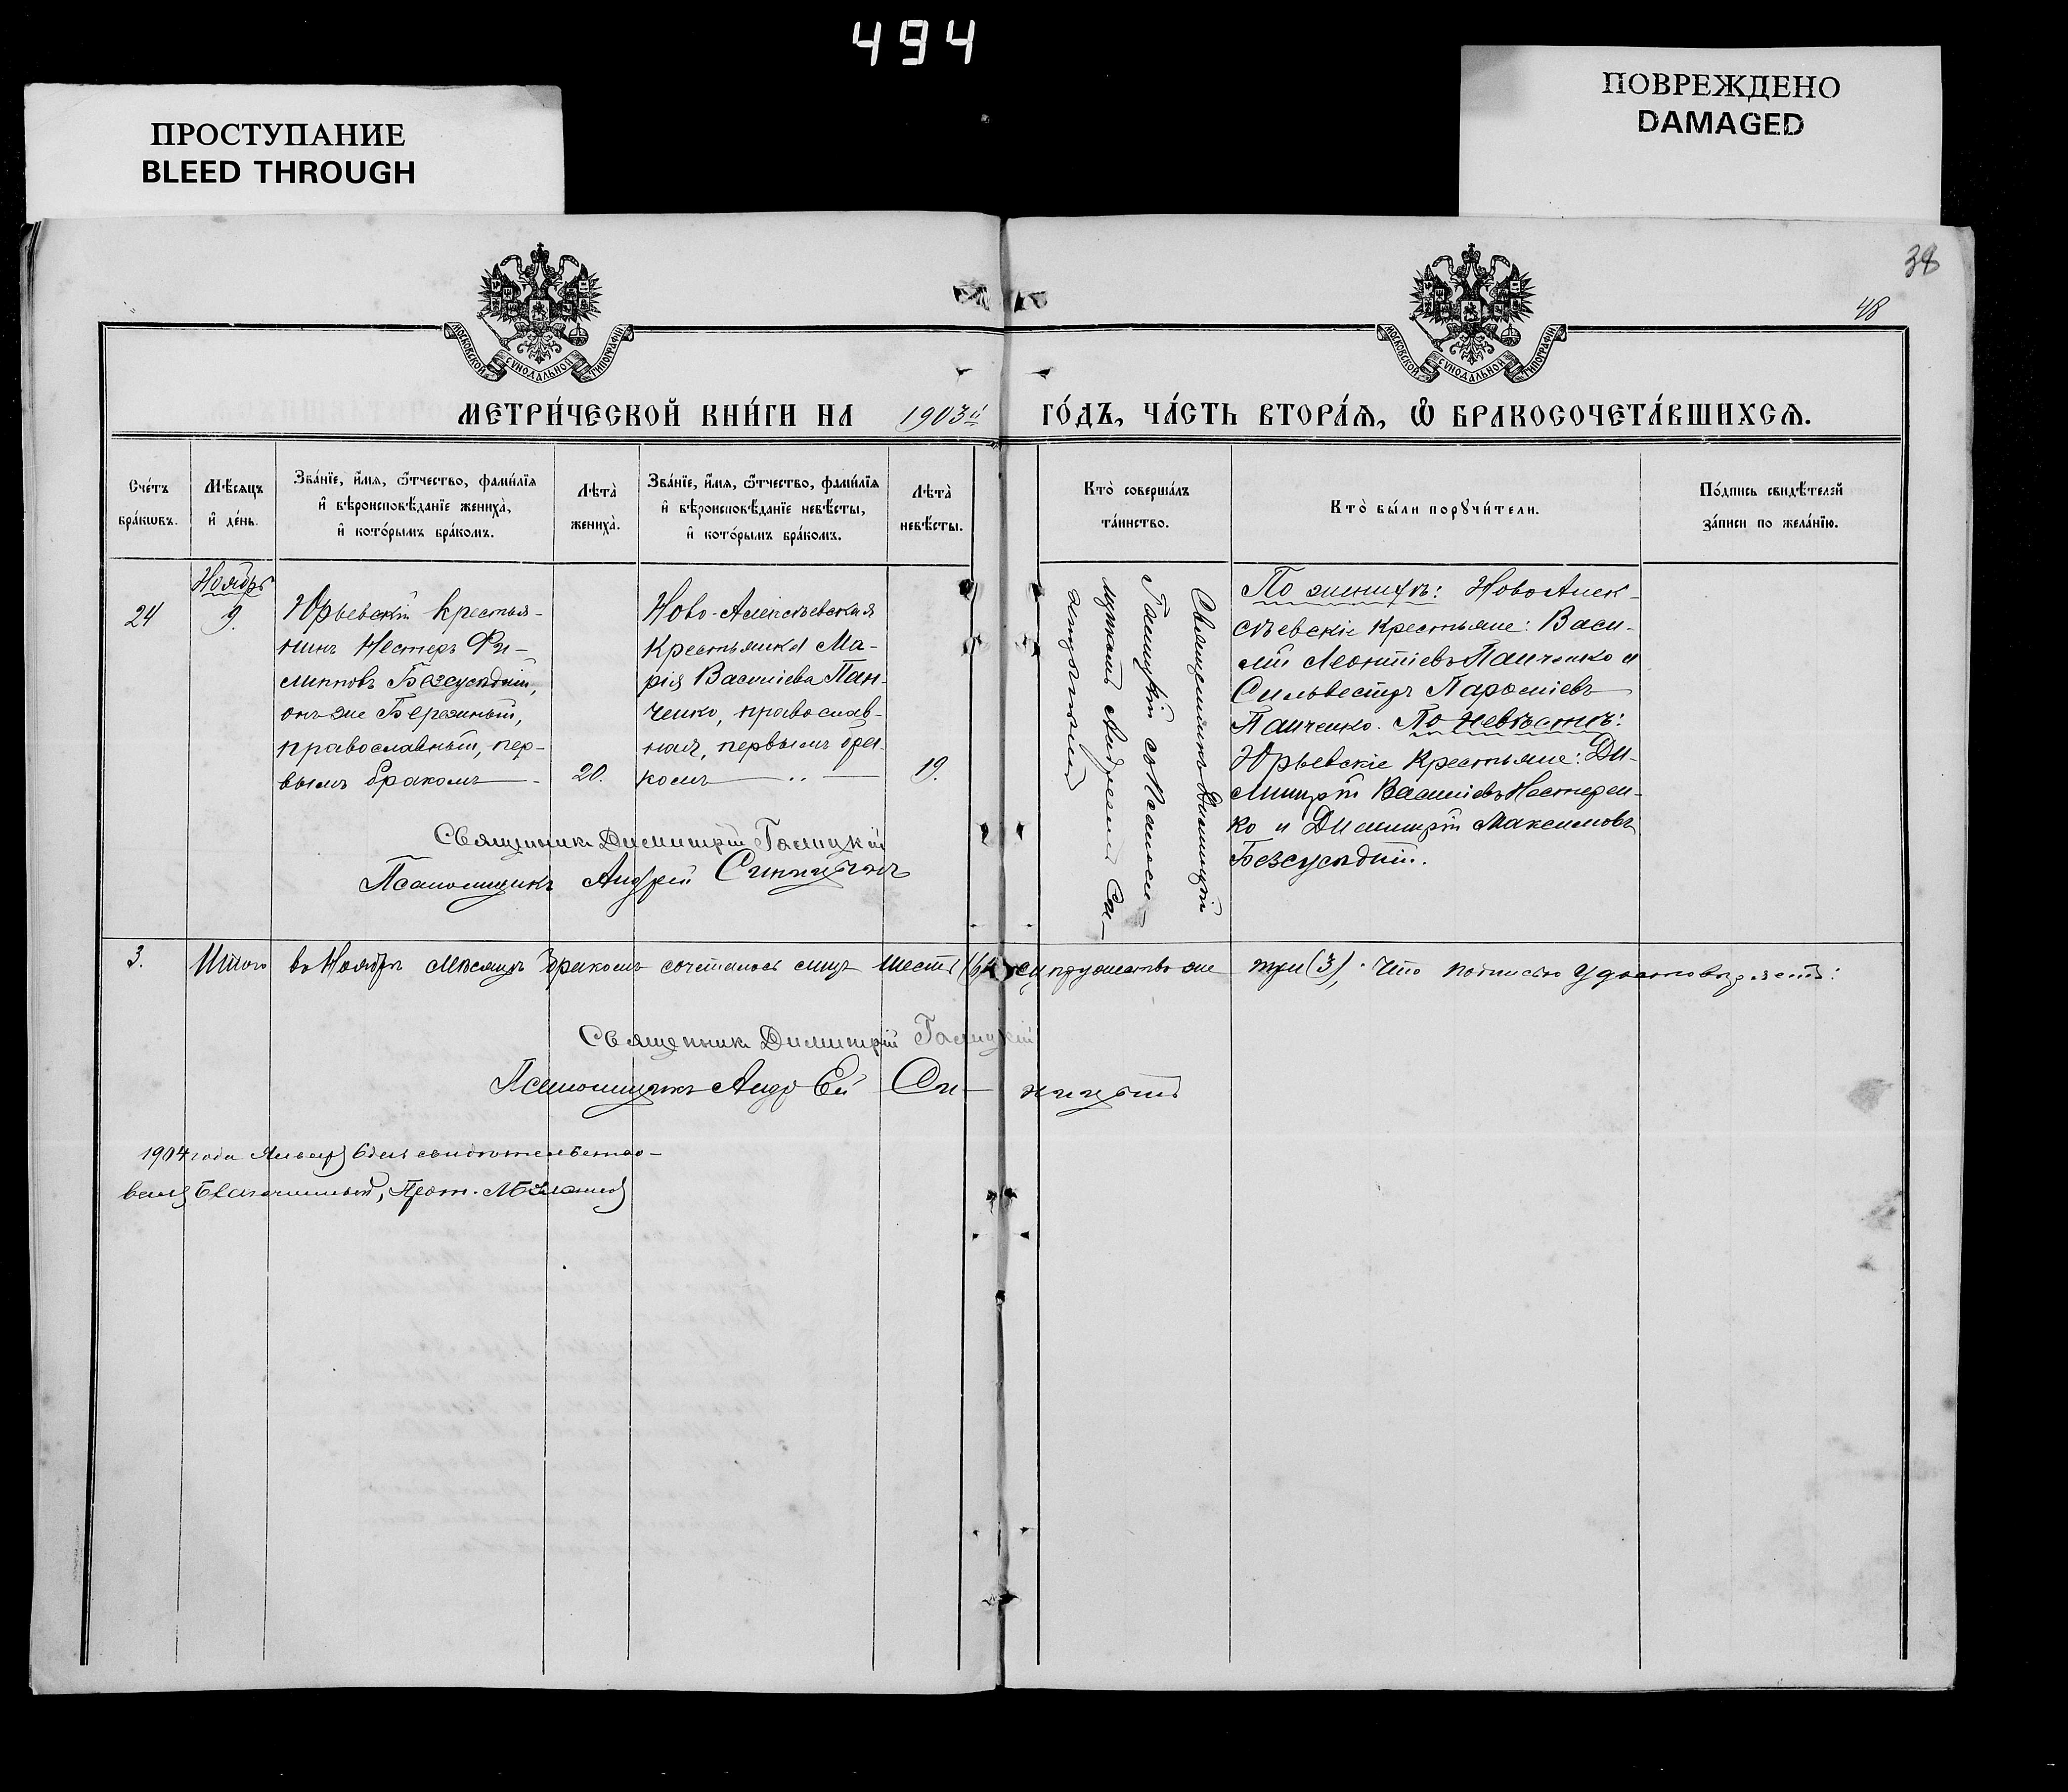 494
ПРОСТУПАНИЕ
BLEED THROUGH
ПОВРЕЖДЕНО
DAMAGED
38
48
МОСКОВСКОЙ СѴНОДАЛЬНОЙ ТИПОГРАФІИ
МОСКОВСКОЙ СѴНОДАЛЬНОЙ ТИПОГРАФІИ
МЕТРИ́ЧЕСКОЙ КНИ́ГИ НА 1903й ГО́ДЪ, ЧА́СТЬ ВТОРА́Ѧ, Ѽ БРАКОСОЧЕТА́ВШИХСѦ.
Сче́тъ
бра́кѡвъ.
Мѣ́сѧцъ
и҆ де́нь.
Зва́нїе, и҆́мѧ, ѻ҆́тчество, фами́лїѧ
и҆ вѣроисповѣ́данїе жениха̀,
и҆ кото́рымъ бра́комъ.
Лѣта̀
жениха̀.
Зва́нїе, и҆́мѧ, ѻ҆́тчество, фами́лїѧ
и҆ вѣроисповѣ́данїе невѣ́сты,
и҆ кото́рымъ бра́комъ.
Лѣта̀
невѣ́сты.
Кто̀ соверша́лъ
та́инство.
Кто̀ бы́ли порꙋчи́тели.
По́дпись свидѣ́телей
за́писи по жела́нїю.
24
Ноябрь
9.
Юрьевскій крестья-
нинъ Нестеръ Фи-
липповъ Безсуѣдній,
онъ же Бережный,
православный, пер-
вымъ бракомъ
20.
Ново-Алексѣевская
крестьянка Ма-
рія Василіева Пан-
ченко, православ-
ная, первымъ бра-
комъ
19.
Священникъ Димитрій
Галицкій съ Псаломщ-
Андреемъ Си-
По женихѣ: НовоАлек-
сѣевскіе крестьяне: Васи-
лій Леонтіевъ Панченко и
Сильвестръ
Панченко. По невѣстѣ:
Юрьевскіе крестьяне: Ди-
митрій Василіевъ Нестерен-
ко и Димитрій Максимовъ
Безсуѣдній.
Священникъ Димитрій Галицкій
Псаломщикъ Андрей
3. Итого въ Ноябрѣ мѣсяцѣ бракомъ сочеталось лицъ шесть (6), супружествъ же три (3), что подписью удостовѣряемъ:
Священникъ Димитрій Галицкій
Псаломщикъ Андрей
1904 года Января 6 дня свидѣтельство-
валъ Благочинный, Прот.